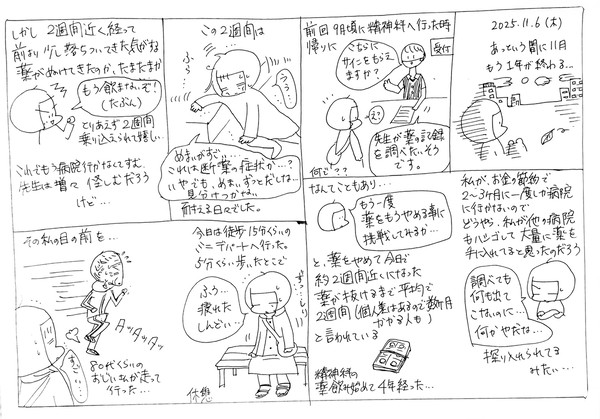 2025.11.6(木)
あっという間に11月
もう1年が終わる…
前回9月頃に精神科へ行った時
帰りに
受付
こちらに
サインをもらえ
ますか?
え?
先生が薬の記録
を調べたいそう
です。
何で??
この2週間は
ふら
うぅ
めまいがひどい
これは断薬の症状か…?
いやでも、めまい、ずっとだしな…
見分けつかない
耐える日々でした。
しかし2週間近く経って
前より少し落ちついてきた気がする
薬がぬけてきたのか、たまたまか
もう飲まないぞ!
(たぶん)
とりあえず2週間
乗り込えられて嬉しい
これでもう病院行かなくてすむ、
先生は増々怪しむだろう
けど…
私が、お金の節約で
2〜3ヶ月に一度しか病院
に行かないので
どうやら、私が他の病院
もハシゴして大量に薬を
手に入れてると思ったのだろう
調べても
何も出て
こないのに…
何かやだな…
探り入れられてる
みたい…
なんてこともあり…
もう一度
薬をもうやめる事に
挑戦してみるか…
と、薬をやめて今日で
約2週間近くになった
薬が抜けるまで平均で
2週間(個人差はあるので数ヶ月
かかる人も)
と言われている
精神科の
薬飲み始めて4年経った…
今日は徒歩15分くらいの
ミニデパートへ行った。
5分くらい歩いたとこで
ふぅ…
疲れた
しんどい…
ずっしり
休憩
その私の目の前を…
タッタッタッ
すごい…
80代くらいの
おじいさんが走って
行った…